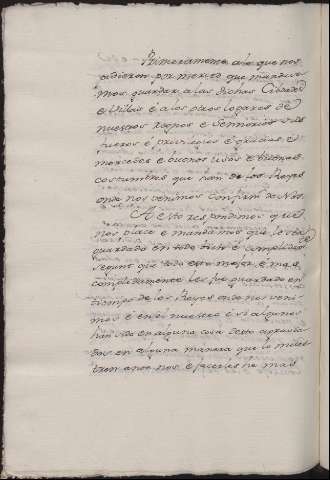 Primeramente a lo que nos
pidieron por merced que mandase
mos guardar a las dichas Cibdades
e Villas é a los otros logares de
nuestros Regnos e Señorios sus
fueros é privilegios é gracias, e
mercedes e buenos usos e buenas
costumbres que han de los Reyes
onde nos venimos Confirm de Nos.
A esto respondimos que
nos place e mandamos que les sea
guardado en todo esto é complido
segunt que todo esto mejor é mas
complidamente les fue guardado en
tiempo de los Reyes onde nos veni
mos é en el nuestro é si algunos
han ido en alguna cosa desto
en alguna manera que lo mues
tren ante nos é facerles he mas